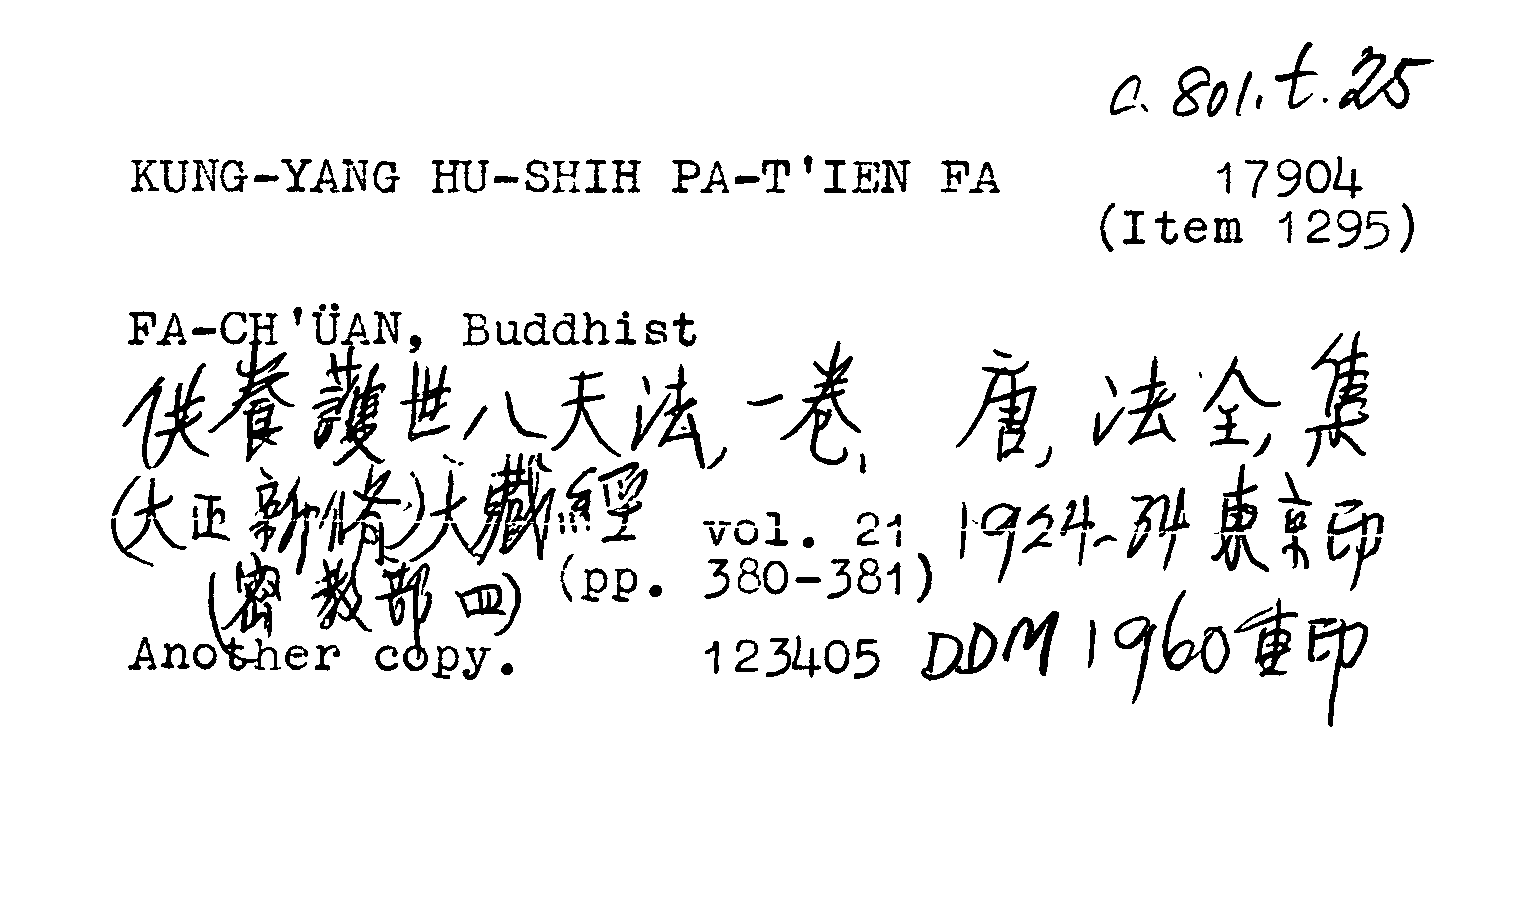 C. 801. t. 25
KUNG-YANG HU-SHIH PA-T'IEN FA 17904
(Item 1295)
FA-CH'ÜAN, Buddhist
供養護世八天法, 一卷, 唐, 法全, 集
(大正新脩)大藏經 vol. 21 1924-34 東京印
(密教部四) (pp. 380-381)
Another copy. 123405 DDM 1960重印